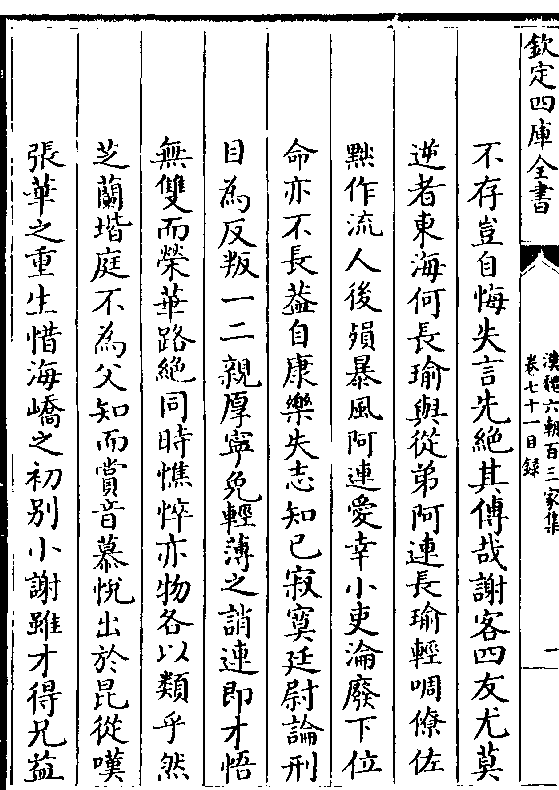 欽定四庫全書
漢魏六朝百三家集
卷七十一目錄
一
不存豈自悔失言先絶其傳哉謝客四友尤莫
逆者東海何長瑜與從弟阿連長瑜輕啁僚佐
黜作流人後殞暴風阿連愛幸小吏淪廢下位
命亦不長葢自康樂失志知已寂寞廷尉論刑
目為反叛一二親厚寧免輕薄之誚連即才悟
無雙而榮華路絶同時憔悴亦物各以類乎然
芝蘭堦庭不為父知而賞音慕悅出於昆從嘆
張華之重生惜海嶠之初别小謝雖才得兄益